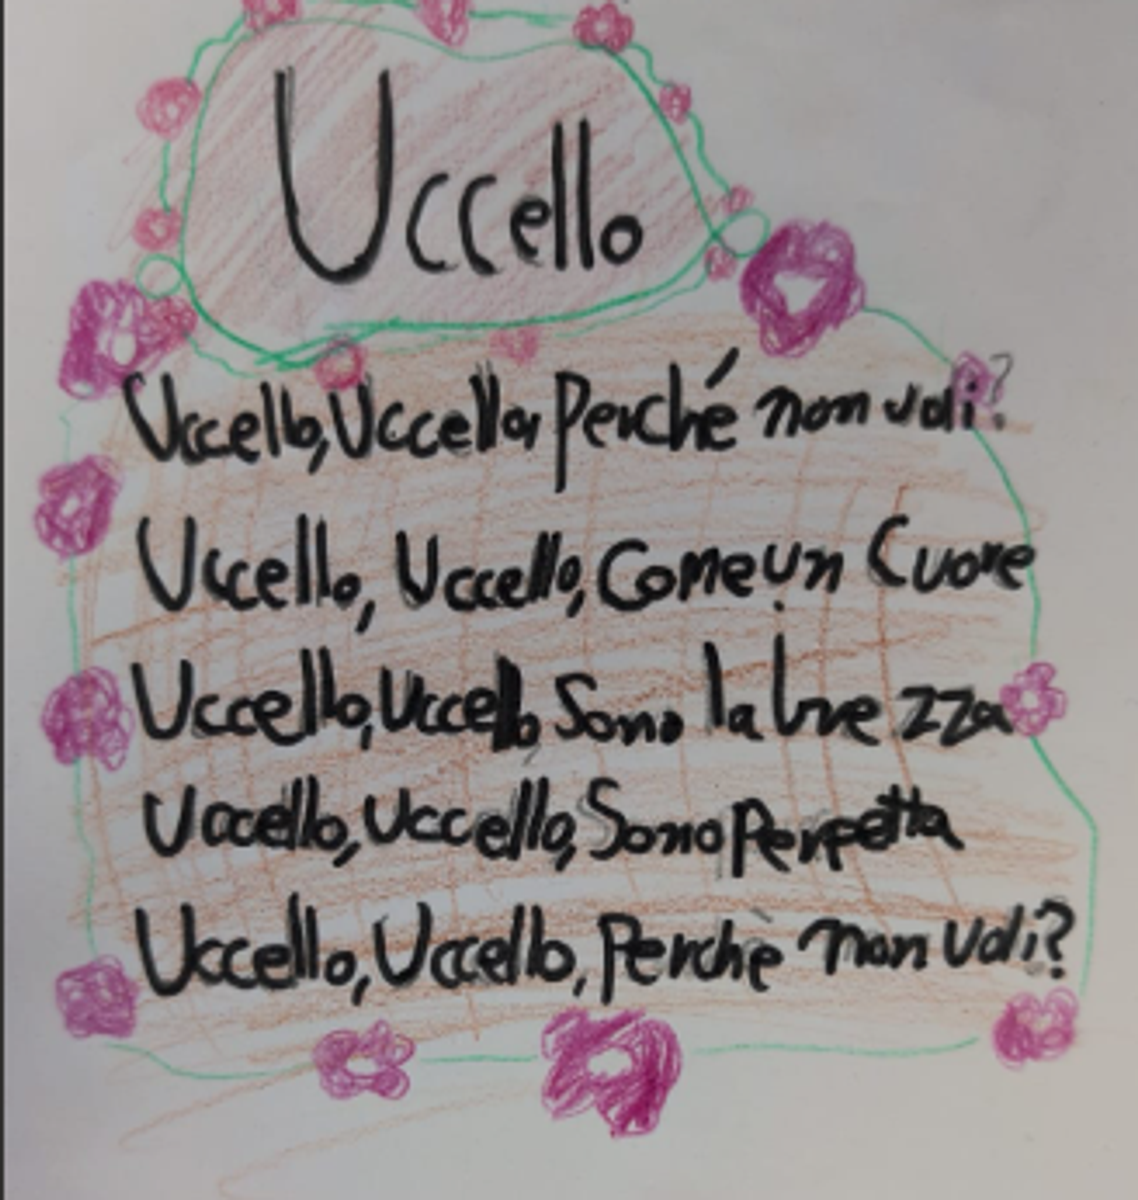 Uccello
Uccello, Uccello, Perché non voli?
Uccello, Uccello, Come un Cuore
Uccello, Uccello, Sono la brezza
Uccello, Uccello, Sono Perpetta
Uccello, Uccello, Perchè non voli?